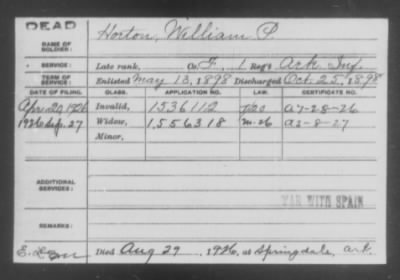 DEAD
NAME OF SOLDIER: Horton, William P.
SERVICE: Late rank, Co. F, 1 Reg't Ark Inf.
TERM OF SERVICE: Enlisted May 13, 1898 Discharged Oct. 25, 1898
DATE OF FILING. CLASS. APPLICATION NO. LAW. CERTIFICATE NO.
1926 Invalid, 1536112 A7-28-26
1926 Sep. 27 Widow, 1556318 A2-8-27
Minor,
ADDITIONAL SERVICES:
WAR WITH SPAIN
REMARKS:
Died Aug 29, 1926, at Springdale, Ark.